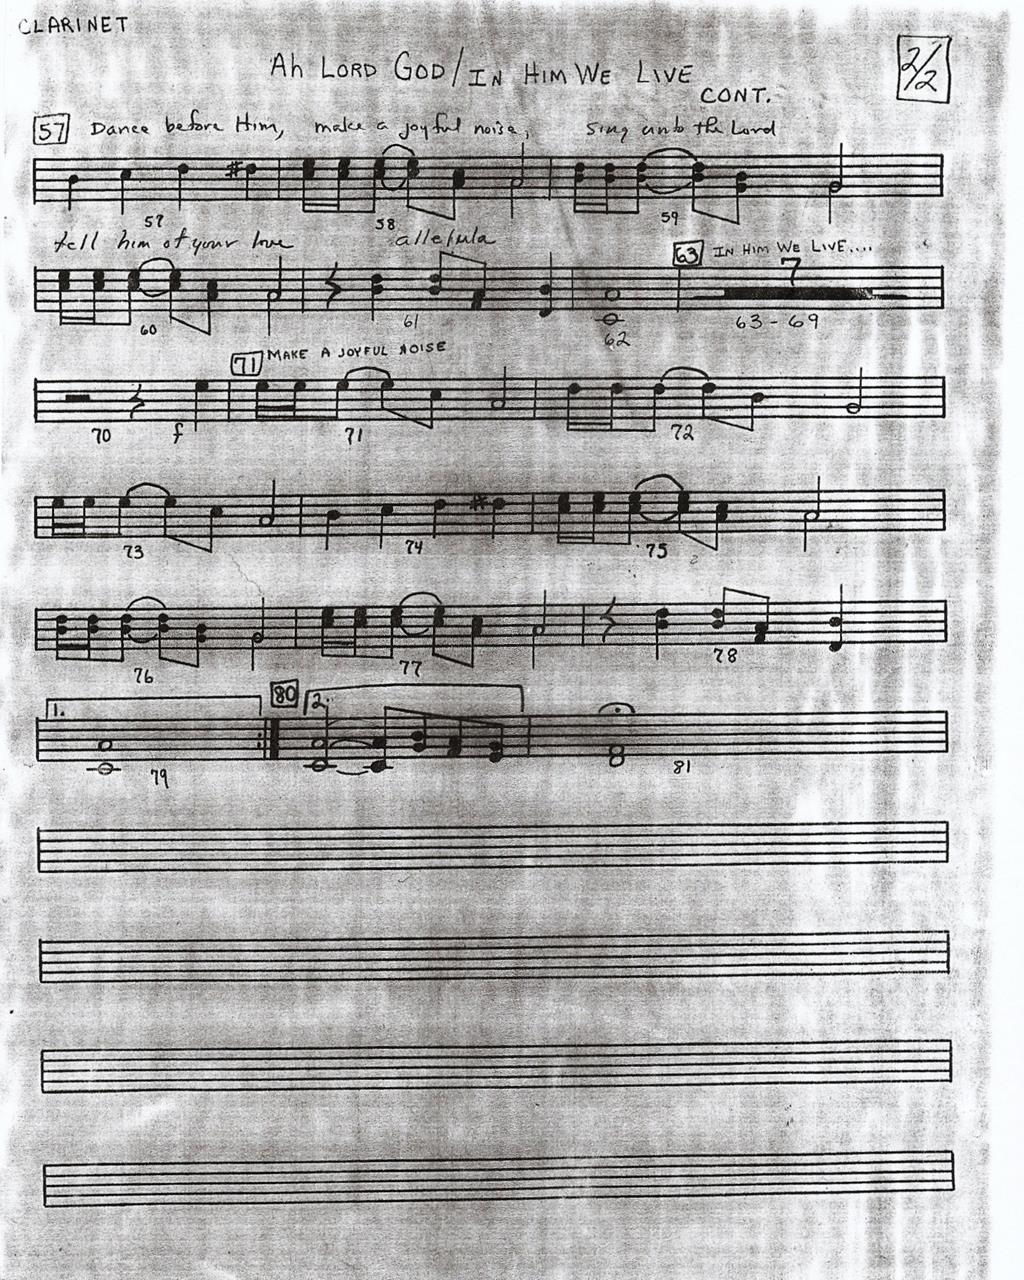 CLARINET
2/2
AH LORD GOD/IN HIM WE LIVE
CONT.
57 Dance before Him, make a joyful noise, Sing unto the Lord
57 58 59
tell him of your love allelula
63 IN HIM WE LIVE....
7
60 61 62 63-69
71 MAKE A JOYFUL NOISE
70 f 71 72
73 74 75
76 77 78
1. 80 2.
79 81